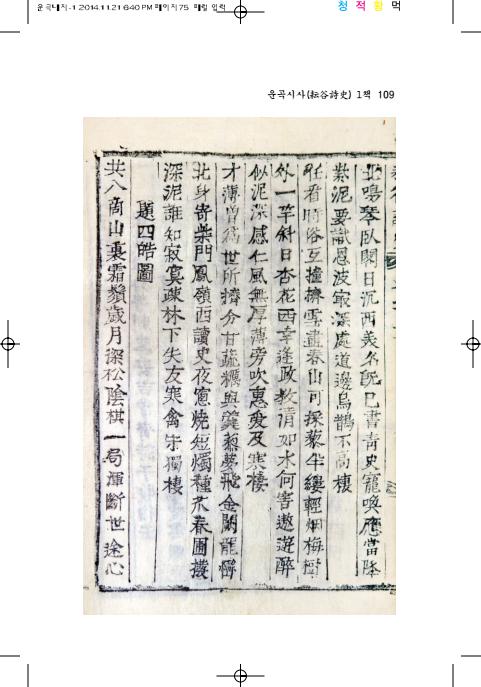 운곡내지-1 2014.11.21 6:40 PM 페이지75 매킬 입력
청 적 황 먹
운곡시사(耘谷詩史) 1책 109
北鳴琴臥閣日沉西美名旣已書靑史寵喚應當降
紫泥要識恩波㝡深處道邊烏鵲不高棲
旺看時俗互撞擠雪盡春山可採藜半縷輕烟梅樹
外一竿斜日杏花西幸逢政敎淸如水何害遨遊醉
似泥深感仁風無厚薄旁吹惠愛及寒棲
才薄曾爲世所擠分甘蔬糲與羹藜夢飛金闕龍
北身寄柴門鳳嶺西讀史夜窓燒短燭種禾春圃撥
深泥誰知寂寞疎林下失友寒禽宗獨棲
題四皓圖
共入商山裏霜鬚歲月深松陰棋一局渾斷世途心